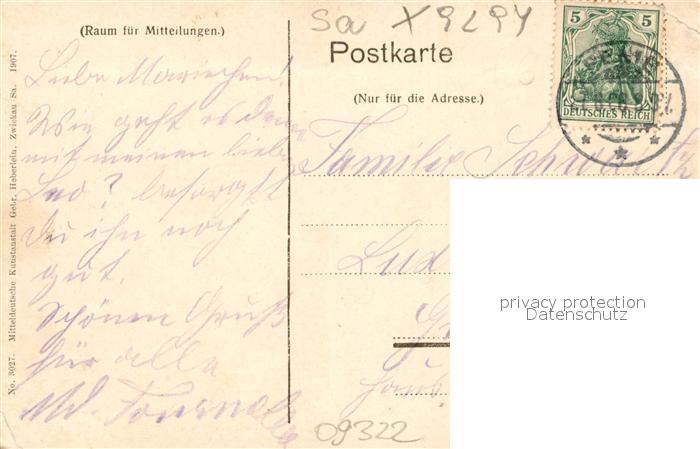 (Raum für Mitteilungen.)
Liebe Mariechen!
Wie geht es denn
mit meinen lieben
Leo? besorgst
Du ihn noch
gut.
Schönen Gruß
für alle
No. 3027. Mitteldeutsche Kunstanstalt Gebr. Haberlein, Zwickau Sa. 1907.
Sa X 9294
Postkarte
(Nur für die Adresse.)
5 5
DEUTSCHES REICH
Familie
09322
privacy protection
Datenschutz